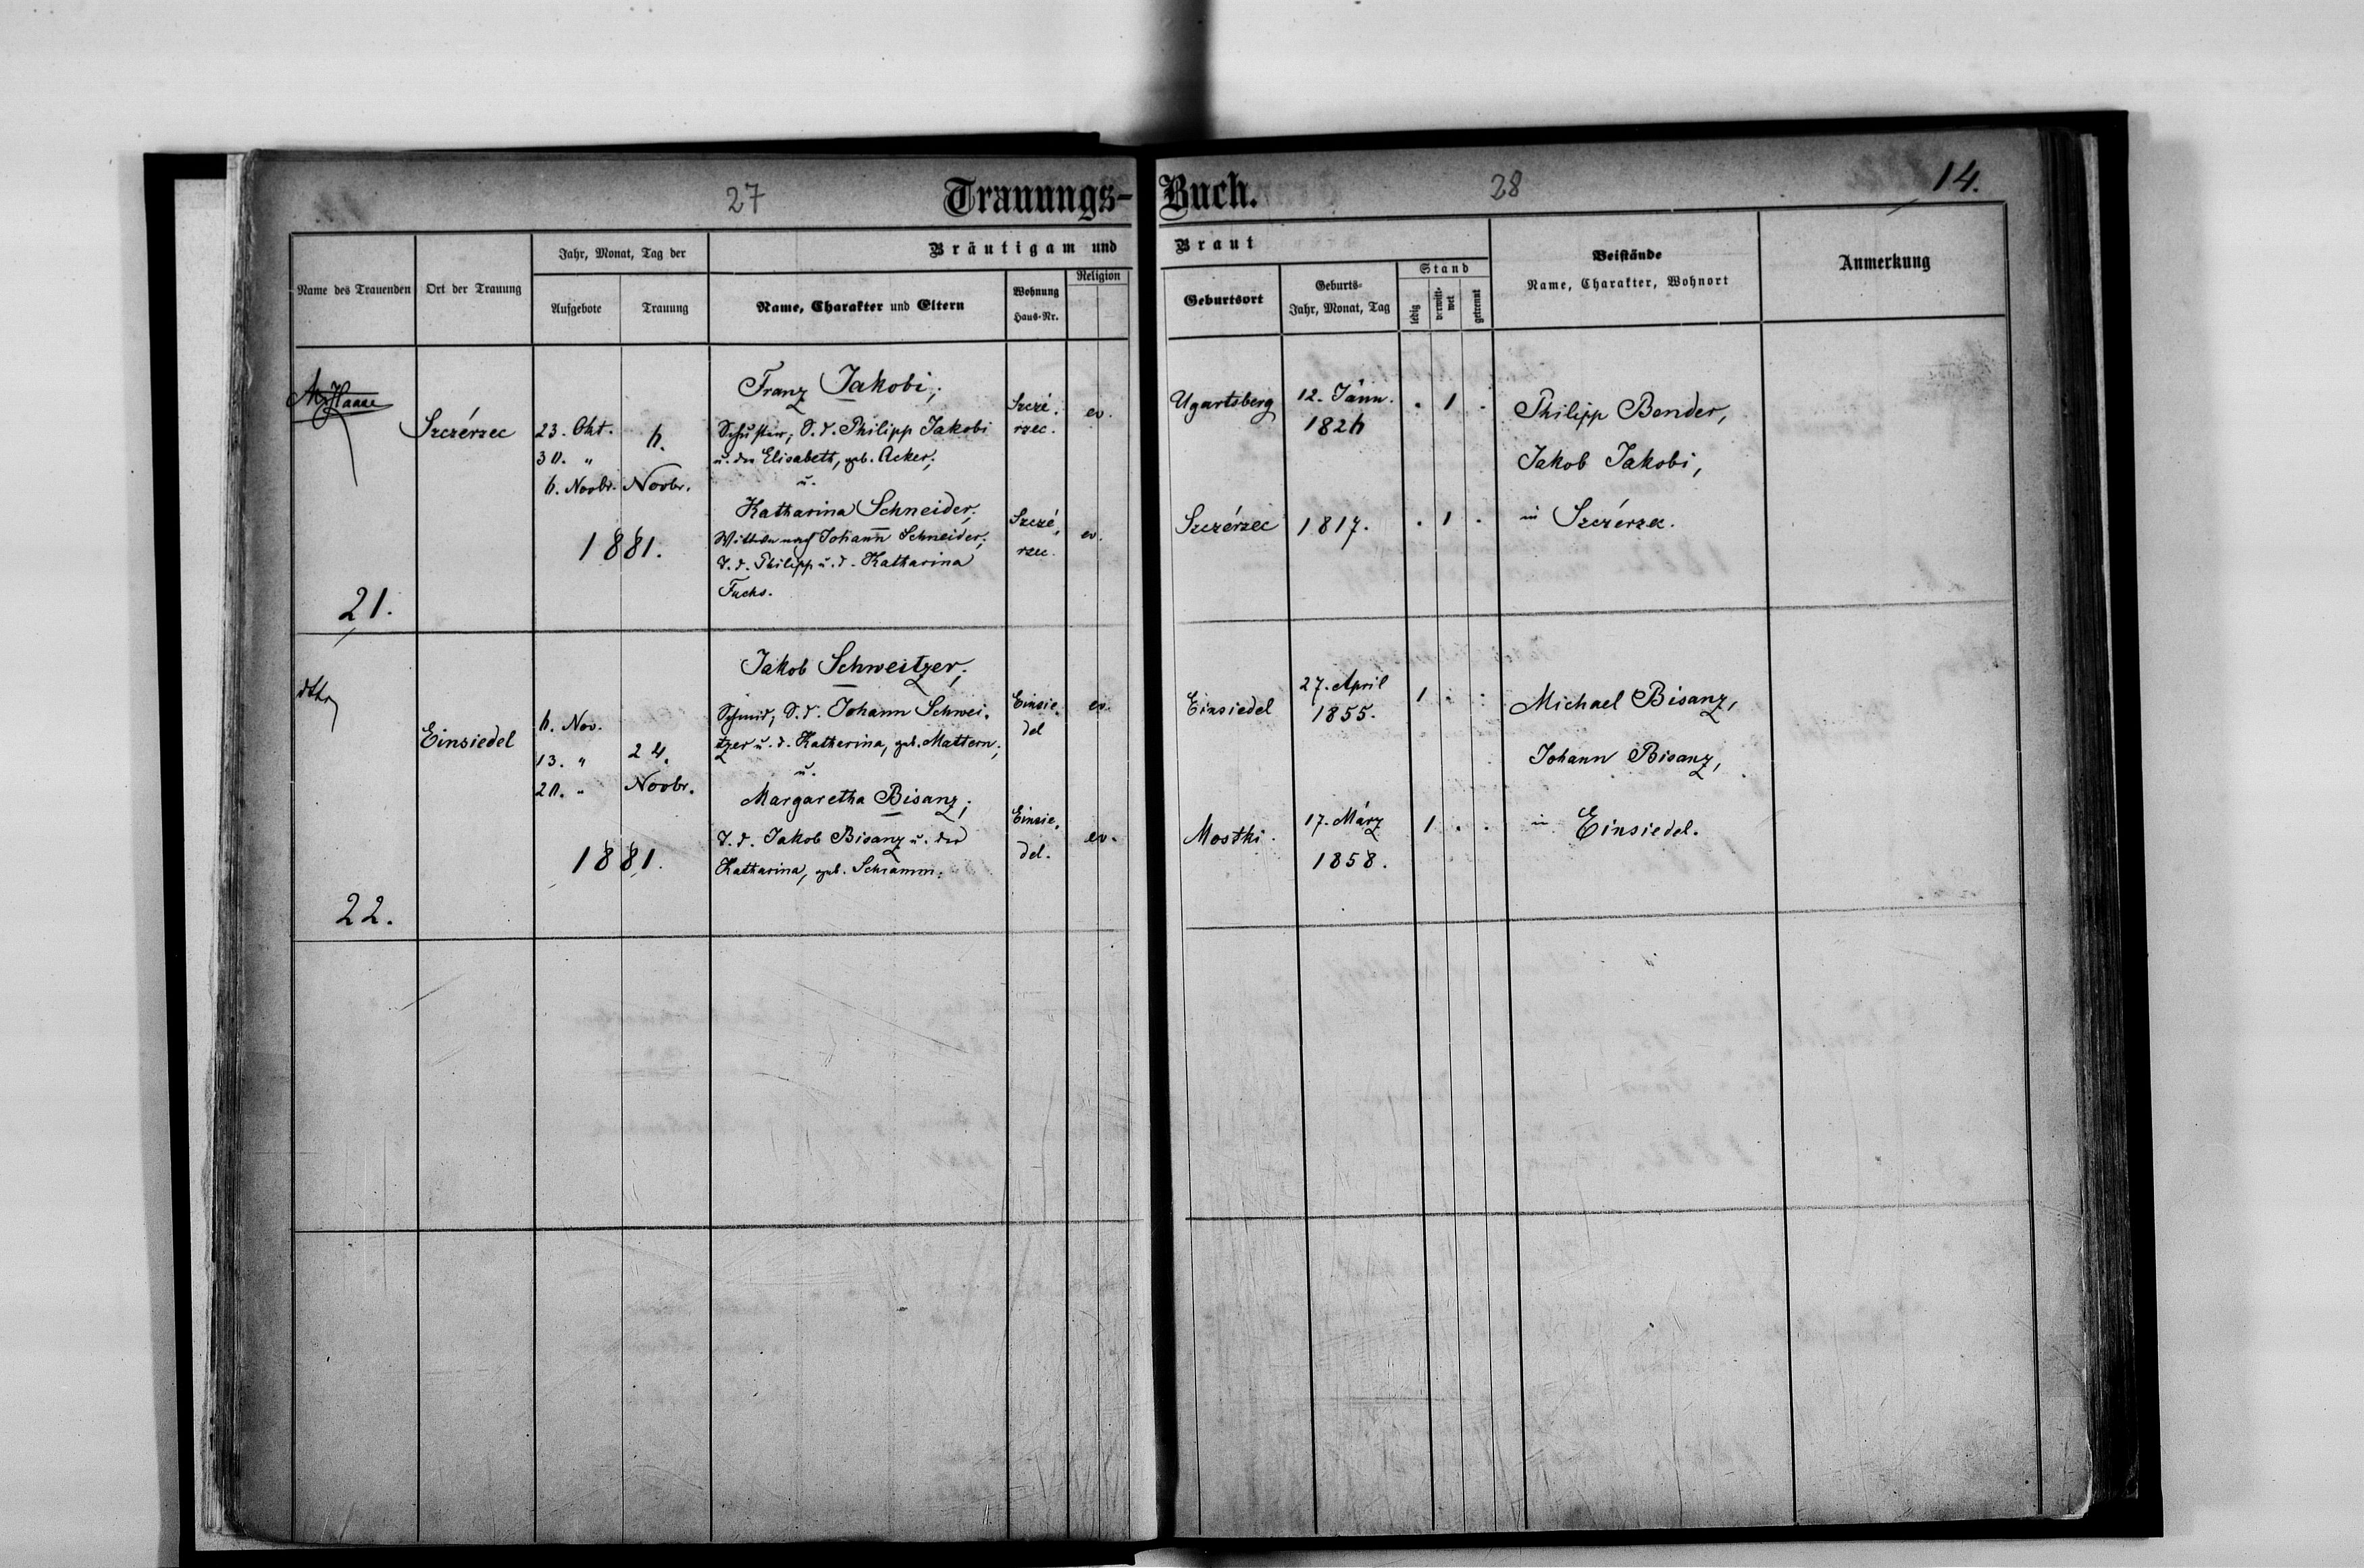 27
Trauungs-Buch.
28
14.
Jahr, Monat, Tag der
Bräutigam und Braut
Name des Trauenden
Ort der Trauung
Aufgebote
Trauung
Name, Charakter und Eltern
Wohnung
Haus-Nr.
Religion
Geburtsort
Geburts-
Jahr, Monat, Tag
Stand
ledig
verwitt-
wet
getrennt
Beistände
Name, Charakter, Wohnort
Anmerkung
Haase
Szczérzec
23. Okt.
30. "
6. Novbr.
6.
Novbr.
1881.
Franz Jakobi;
Schuster, S. d. Philipp Jakobi
u. der Elisabeth, geb. Acker;
u.
Katharina Schneider;
Wittwe nach Johann̄ Schneider;
T. d. Philipp u. d. Katharina
Fuchs.
Szczé-
rzec.
ev.
Szczé,
rzec.
ev.
Ugartsberg
12. Jänn.
1826
. 1 .
Szczérzec
1817.
. 1 .
Philipp Bender,
Jakob Jakobi,
in Szczérzec.
21.
dtto
Einsiedel
6. Nov.
13. "
20. "
24.
Novbr.
1881.
Jakob Schweitzer;
Schmid, S. d. Johann Schwei-
tzer u. d. Katharina, geb. Mattern;
u.
Margaretha Bisanz;
T. d. Jakob Bisanz u. der
Katharina, geb. Schramm.
Einsie-
del
ev.
Einsie,
del.
ev.
Einsiedel
27. April
1855.
1 . .
Mostki.
17. März
1858.
1 . .
Michael Bisanz,
Johann Bisanz,
in Einsiedel.
22.